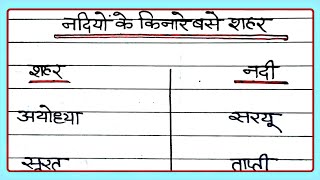 नदियों के किनारे बसे शहर
शहर नदी
अयोध्या सरयू
सूरत ताप्ती